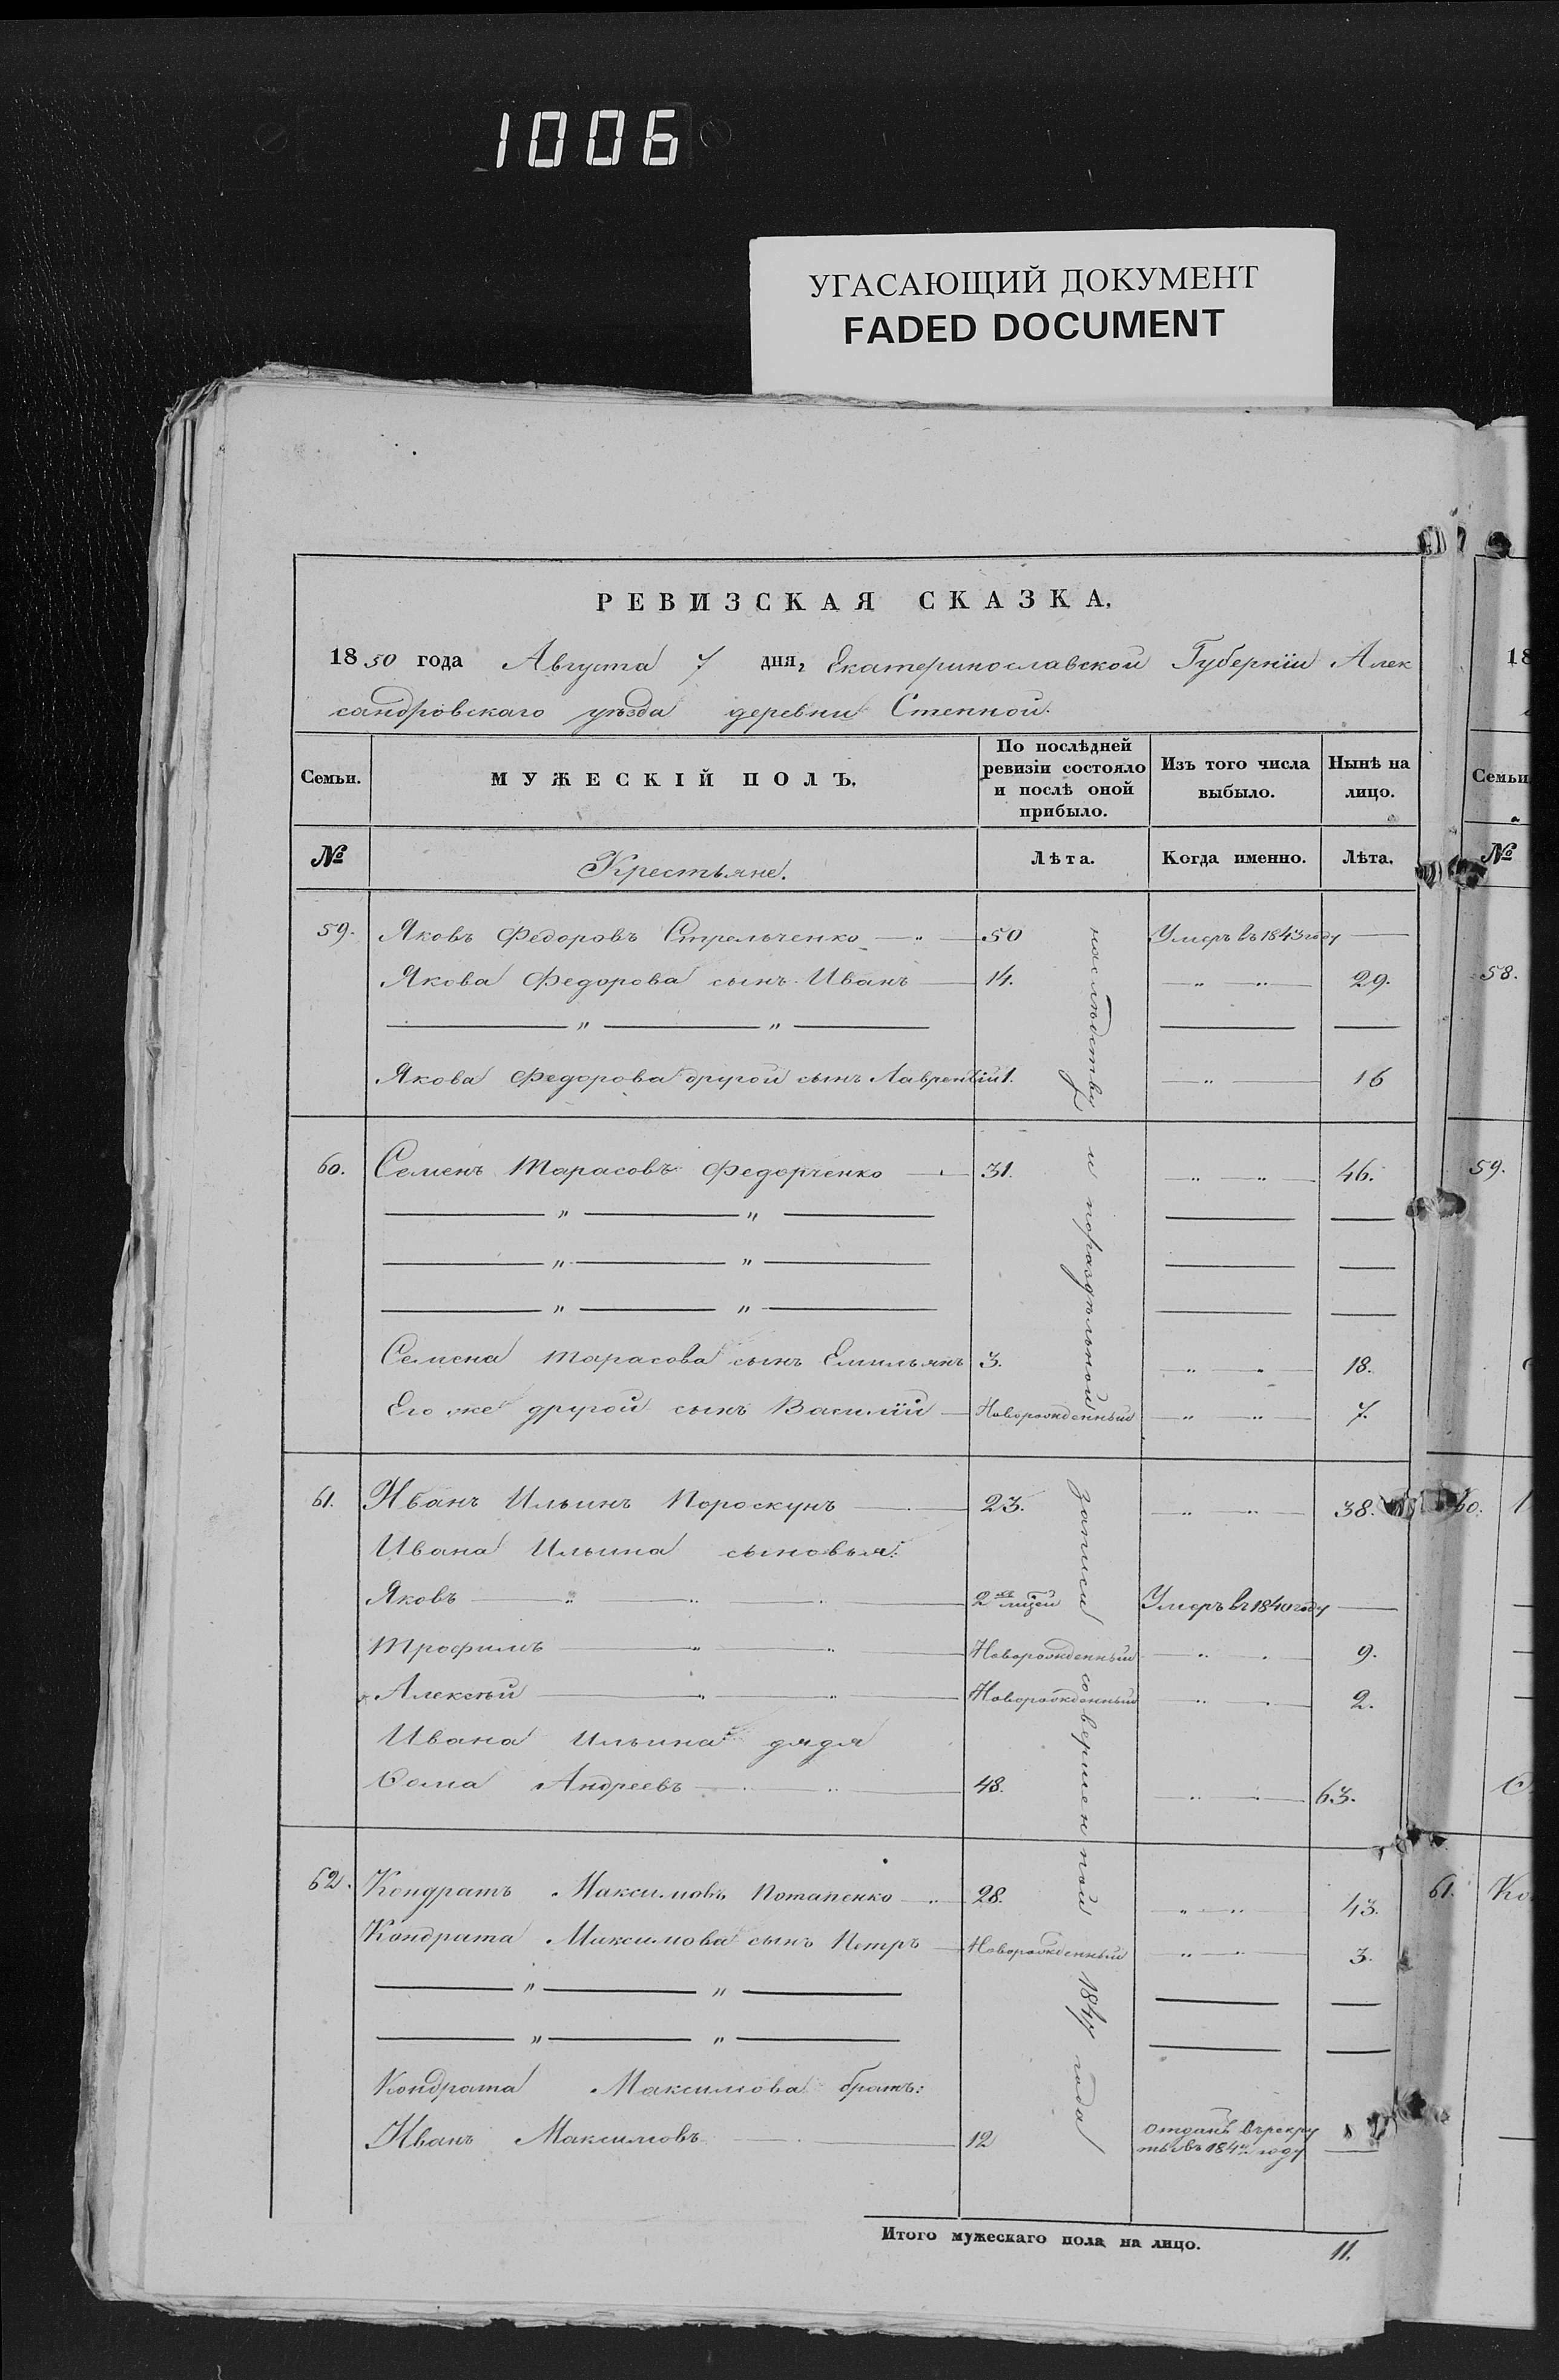 1006
УГАСАЮЩИЙ ДОКУМЕНТ
FADED DOCUMENT
РЕВИЗСКАЯ СКАЗКА.
1850 года Августа 7 дня, Екатеринославской Губерніи Алек
сандровскаго уѣзда деревни Степной.
Семьи. МУЖЕСКІЙ ПОЛЪ. По послѣдней ревизіи состояло и послѣ оной прибыло. Изъ того числа выбыло. Нынѣ на лицо.
№ Крестьяне. Лѣта. Когда именно. Лѣта.
59. Яковъ Федоровъ Стрельченко 50 Умеръ въ 1843 году
Якова Федорова сынъ Иванъ 14. 29.
Якова Федорова другой сынъ Лаврентій 1. 16
60. Семенъ Тарасовъ Федорченко 31. 46.
Семена Тарасова сынъ Емильянъ 3. 18.
Его же другой сынъ Василій Новорожденный 7.
61. Иванъ Ильинъ Пороскунъ 23. 38.
Ивана Ильина сыновья:
Яковъ 2 Умеръ въ 1840 году
Трофимъ Новорожденный 9.
Алексѣй Новорожденный 2.
Ивана Ильина дядя
Фома Андреевъ 48. 63.
62. Кондратъ Максимовъ Потапенко 28. 43.
Кондрата Максимова сынъ Петръ Новорожденный 3.
Кондрата Максимова братъ:
Иванъ Максимовъ 12 отданъ въ рекру
ты въ году
наслѣдству и пораздѣльной записи совершенной 1844 года
Итого мужескаго пола на лицо. 11.
18
Семьи
№
58.
59.
60.
61. Ко